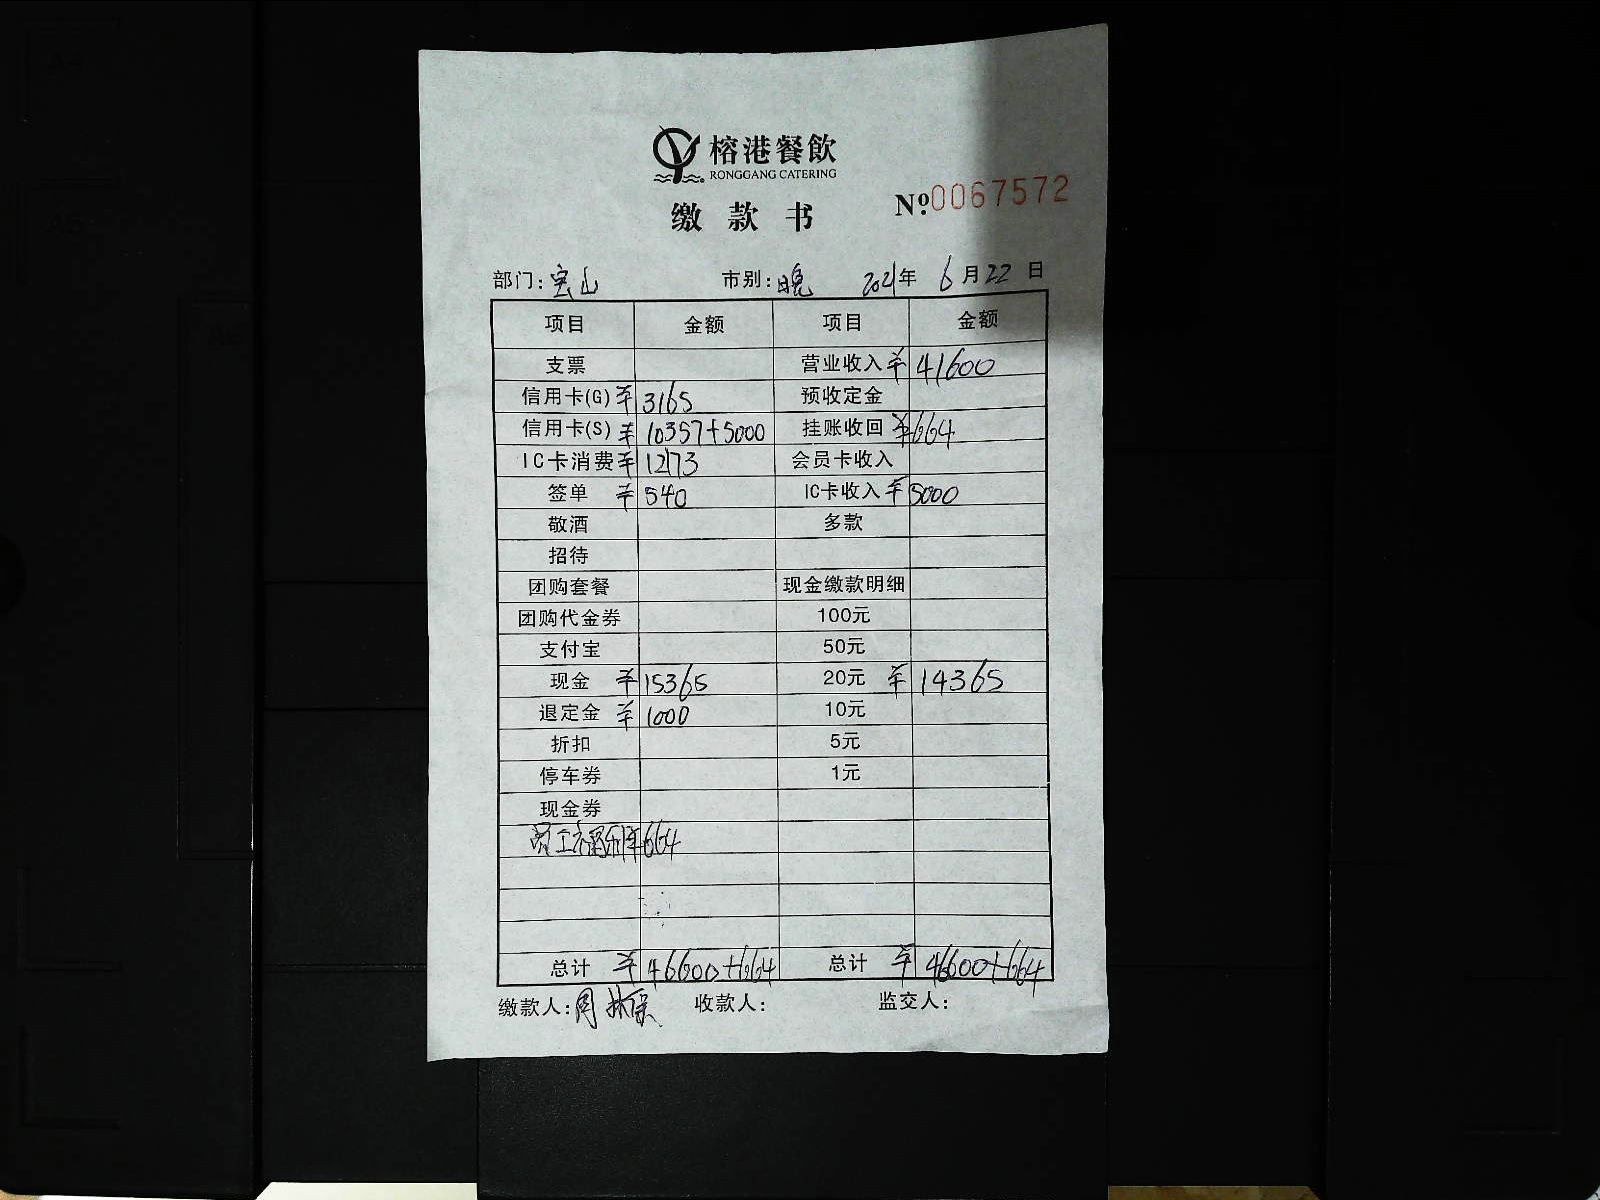 榕港餐飲
RONGGANG CATERING
缴款书
Nº 0067572
部门: 宝山 市别: 晚 2021年 6月 22日
项目 金额 项目 金额
支票 营业收入 ¥ 41600
信用卡(G) ¥ 3165 预收定金
信用卡(S) ¥ 10357+5000 挂账收回 ¥ 664
IC卡消费 ¥ 12173 会员卡收入
签单 ¥ 540 IC卡收入 ¥ 5000
敬酒 多款
招待
团购套餐 现金缴款明细
团购代金券 100元
支付宝 50元
现金 ¥ 15365 20元 ¥ 14365
退定金 ¥ 1000 10元
折扣 5元
停车券 1元
现金券
员工福利 ¥ 664
总计 ¥ 46600+664 总计 ¥ 46600+664
缴款人: 周 收款人: 监交人: